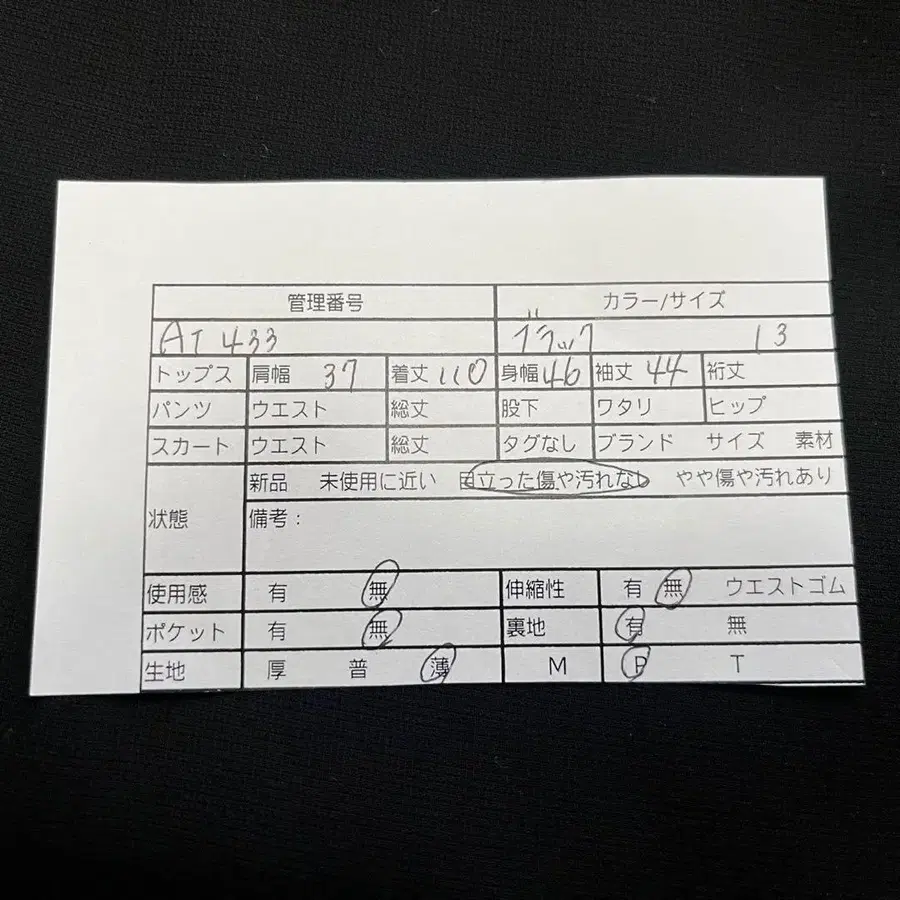 管理番号 カラー/サイズ
AT 433 ブラック 13
トップス 肩幅 37 着丈 110 身幅 46 袖丈 44 裄丈
パンツ ウエスト 総丈 股下 ワタリ ヒップ
スカート ウエスト 総丈 タグなし ブランド サイズ 素材
新品 未使用に近い 目立った傷や汚れなし やや傷や汚れあり
状態 備考：
使用感 有 無 伸縮性 有 無 ウエストゴム
ポケット 有 無 裏地 有 無
生地 厚 普 薄 M P T